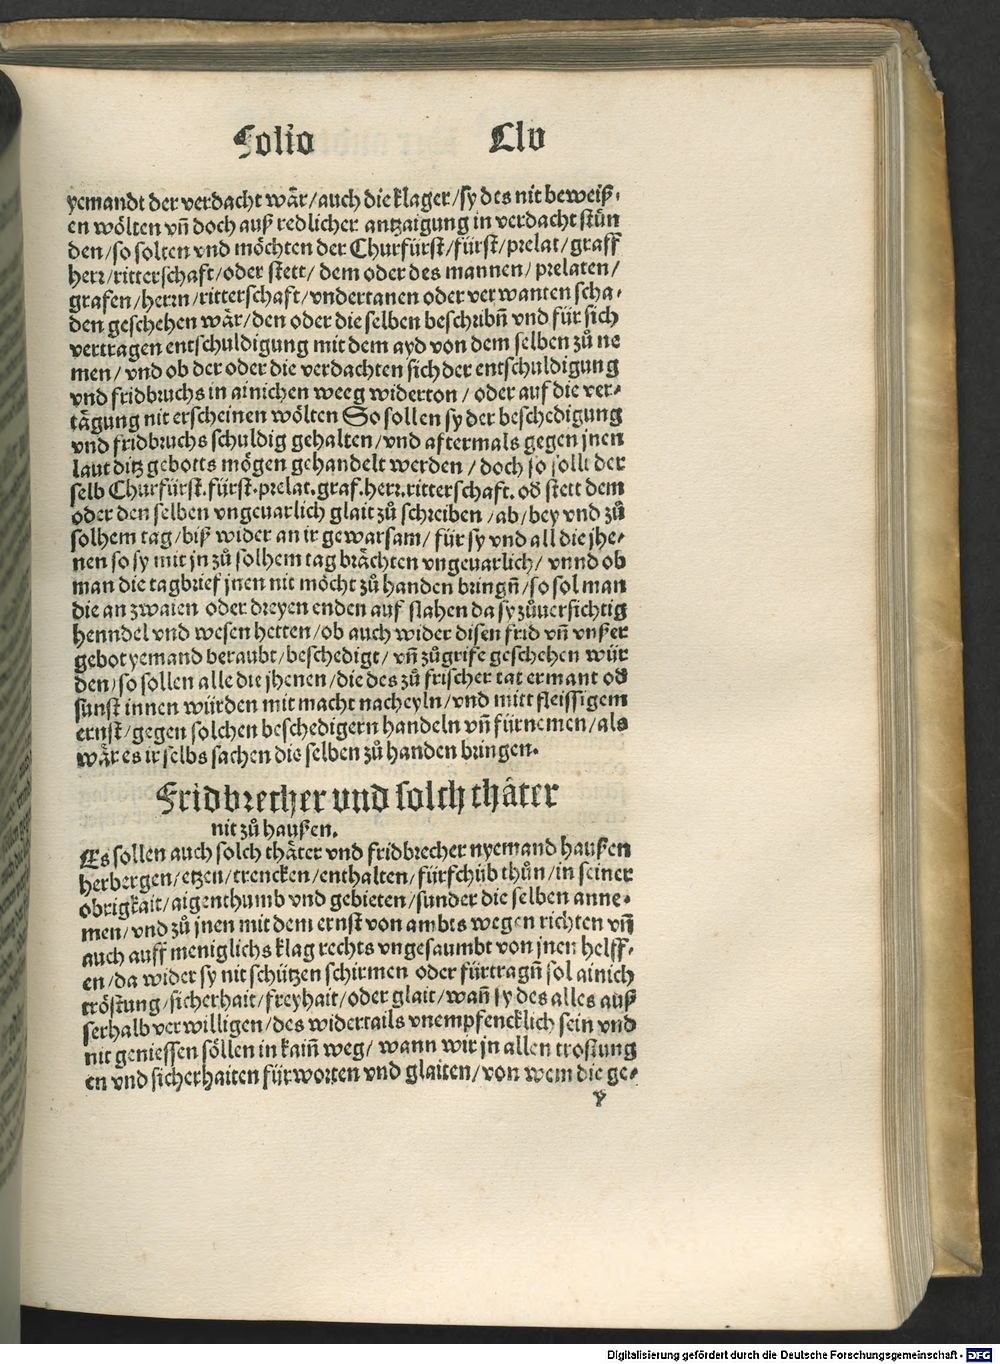 Folio Clv
yemandt der verdacht wår/auch die klager/sy des nit beweiß-
en wölten vñ doch auß redlicher antzaigung in verdacht stůn
den/so solten vnd möchten der Churfürst/fürst/prelat/graff
herr/ritterschaft/oder stett/ dem oder des mannen/ prelaten/
grafen/herrn/ritterschaft/vndertanen oder verwanten scha-
den geschehen wår/den oder die selben beschribñ vnd für sich
vertragen entschuldigung mit dem ayd von dem selben zů ne
men/ vnd ob der oder die verdachten sich der entschuldigung
vnd fridbruchs in ainichen weeg widerton / oder auf die ver-
tågung nit erscheinen wölten So sollen sy der beschedigung
vnd fridbruchs schuldig gehalten/vnd aftermals gegen jnen
laut ditz gebotts mögen gehandelt werden / doch so sollt der
selb Churfürst.fürst.prelat.graf.herr.ritterschaft. oď stett dem
oder den selben vngeuarlich glait zů schreiben /ab/bey vnd zů
solhem tag/biß wider an ir gewarsam/ für sy vnd all die jhe-
nen so sy mit jn zů solhem tag bråchten vngeuarlich/ vnnd ob
man die tagbrief jnen nit möcht zů handen bringñ/so sol man
die an zwaien oder dreyen enden auf slahen da sy zůuersichtig
henndel vnd wesen hetten/ob auch wider disen frid vñ vnßer
gebot yemand beraubt/beschedigt/ vñ zůgrife geschehen wür
den/so sollen alle die jhenen/die des zů frischer tat ermant oď
sunst innen würden mit macht nacheyln/vnd mitt fleissigem
ernst/gegen solchen beschedigern handeln vñ fürnemen/als
wår es ir selbs sachen die selben zů handen bringen.
Fridbrecher vnd solch thåter
nit zů haußen.
Es sollen auch solch thåter vnd fridbrecher nyemand haußen
herbergen/etzen/trencken/enthalten/fürschüb thůn/in seiner
obrigkait/aigenthumb vnd gebieten/sunder die selben anne-
men/vnd zů jnen mit dem ernst von ambts wegen richten vñ
auch auff meniglichs klag rechts vngesaumbt von jnen helff-
en/da wider sy nit schützen schirmen oder fürtragñ sol ainich
tröstung/sicherhait/freyhait/oder glait/wañ sy des alles auß
serhalb verwilligen/des widertails vnempfencklich sein vnd
nit geniessen söllen in kaiñ weg/ wann wir jn allen trostung
en vnd sicherhaiten fürworten vnd glaiten/von wem die ge-
y
Digitalisierung gefördert durch die Deutsche Forschungsgemeinschaft - DFG